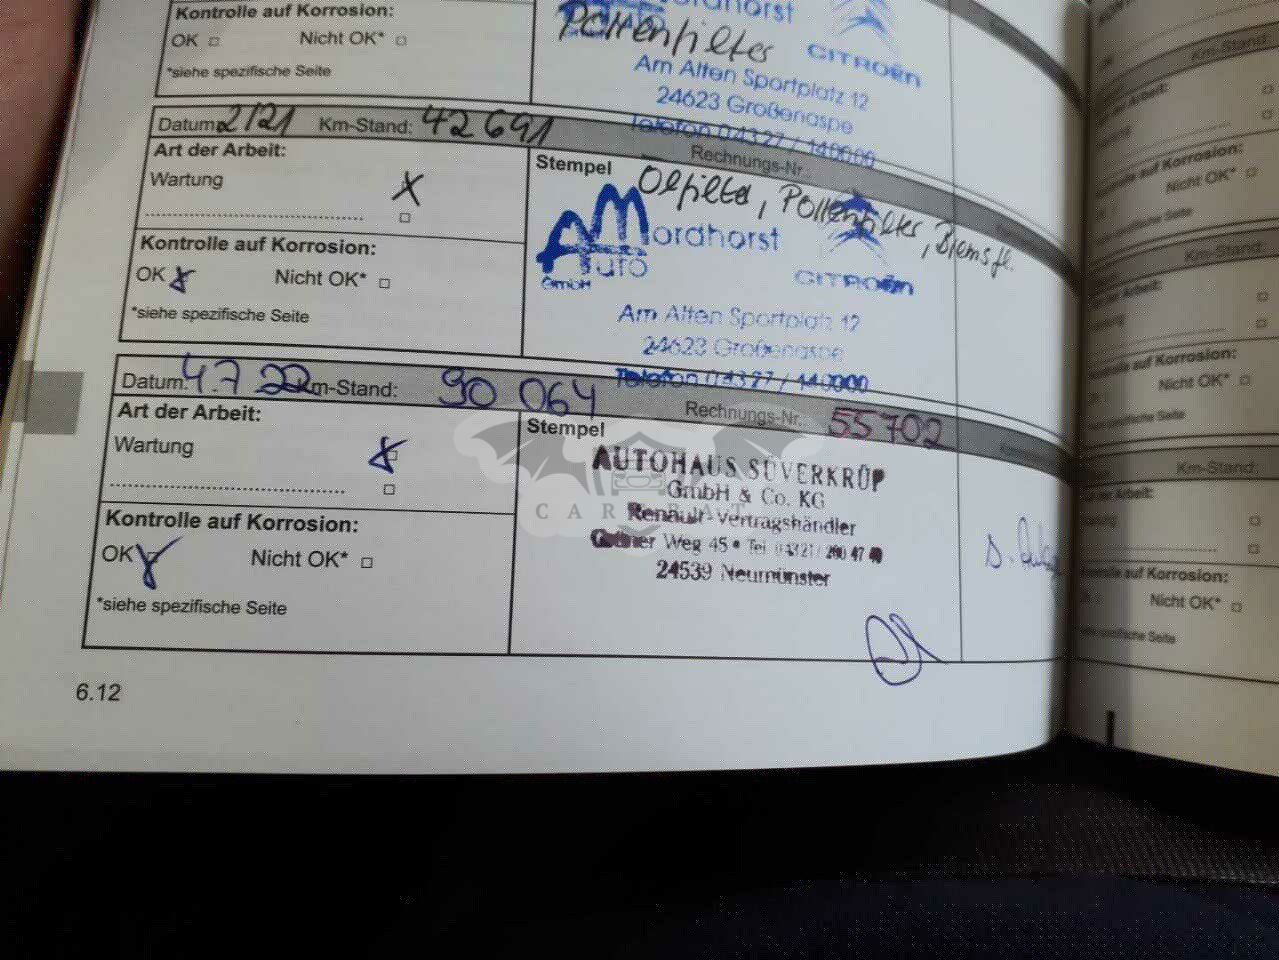 Kontrolle auf Korrosion:
OK Nicht OK*
*siehe spezifische Seite
Pollenfilter
ordhorst
CITROËN
Am Alten Sportplatz 12
24623 Großenaspe
Telefon 04327 / 140000
Datum: 2/21 Km-Stand: 42 691
Rechnungs-Nr.
Art der Arbeit:
Wartung
Stempel
Ölfilter, Pollenfilter, Bremsfl.
Nordhorst
Auto
GmbH
CITROËN
Am Alten Sportplatz 12
24623 Großenaspe
Telefon 04327 / 140000
Kontrolle auf Korrosion:
OK Nicht OK*
*siehe spezifische Seite
Datum: 4.7 22 Km-Stand: 90 064
Rechnungs-Nr.: 55702
Art der Arbeit:
Wartung
Stempel
AUTOHAUS SÜVERKRÜP
GmbH & Co. KG
Renault-Vertragshändler
Weg 45 • Tel.
24539 Neumünster
Kontrolle auf Korrosion:
OK Nicht OK*
*siehe spezifische Seite
6.12
Km-Stand:
Arbeit:
auf Korrosion:
Nicht OK*
Seite
Km-Stand:
Arbeit:
auf Korrosion:
Nicht OK*
Seite
Km-Stand:
Arbeit:
auf Korrosion:
Nicht OK*
Seite